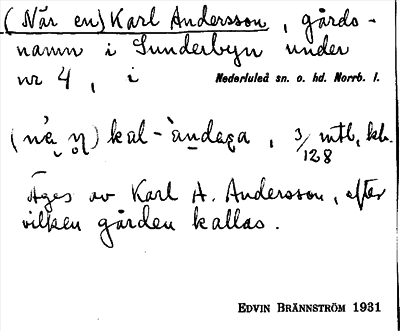 (När en) Karl Andersson, gårds-
namn i Sunderbyn under
nr 4, i Nederluleå sn. o. hd. Norrb. l.
kal-àndaṣa, 3/128 mtl, kb.
Äges av Karl A. Andersson, efter
vilken gården kallas.
EDVIN BRÄNNSTRÖM 1931